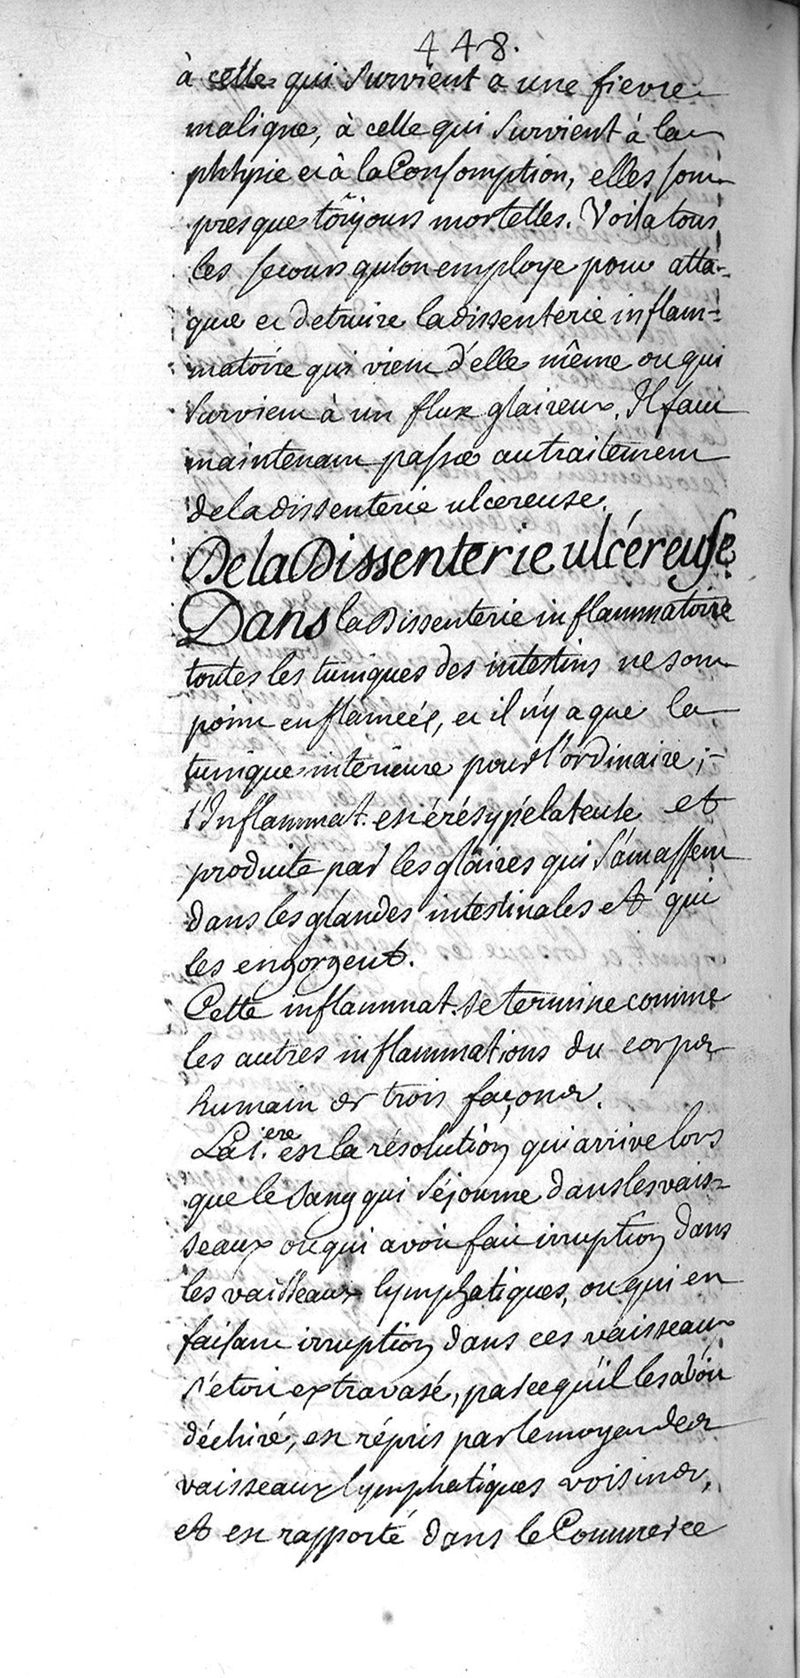 448.
à celle qui survient à une fievre
maligne, à celle qui survient à la
phtysie et à la Consomption, elles sont
presque toûjours mortelles. Voila tous
les secours qu'on employe pour atta-
quer et detruire la dissenterie inflam-
matoire qui vient d'elle même ou qui
survient à un flux glaireux. Il faut
maintenant passer au traitement
de la dissenterie ulcereuse.
De la Dissenterie ulcéreuse.
Dans la dissenterie inflammatoire
toutes les tuniques des intestins ne sont
point enflameés, et il n'y a que la
tunique interieure pour l'ordinaire;
l'Inflammat. est érésypélateuse et
produite par les glaires qui s'amassent
dans les glandes intestinales et qui
les engorgent.
Cette inflammat. se termine comme
les autres inflammations du corps
humain de trois façons.
La 1.ere est la résolution qui arrive lors
que le sang qui séjourne dans les vais-
seaux ou qui avoit fait irruption dans
les vaisseaux lymphatiques, ou qui en
faisant irruption dans ces vaisseaux
s'étoit extravasé, parcequ'il les avoit
déchiré, est répris par le moyen des
vaisseaux lymphatiques voisins,
et est rapporté dans le Commerce